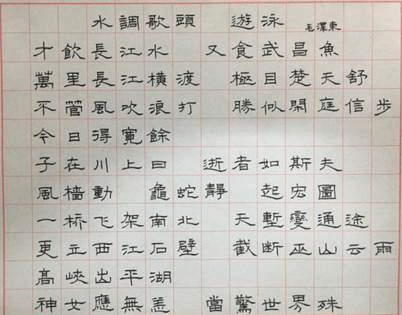 水調歌頭 遊泳
毛澤東
才飲長江水 又食武昌魚
萬里長江橫渡 極目楚天舒
不管風吹浪打 勝似閑庭信步
今日得寬餘
子在川上曰 逝者如斯夫
風檣動 龜蛇靜 起宏圖
一桥飞架南北 天塹變通途
更立西江石壁 截断巫山云雨
高峽出平湖
神女應無恙 當驚世界殊